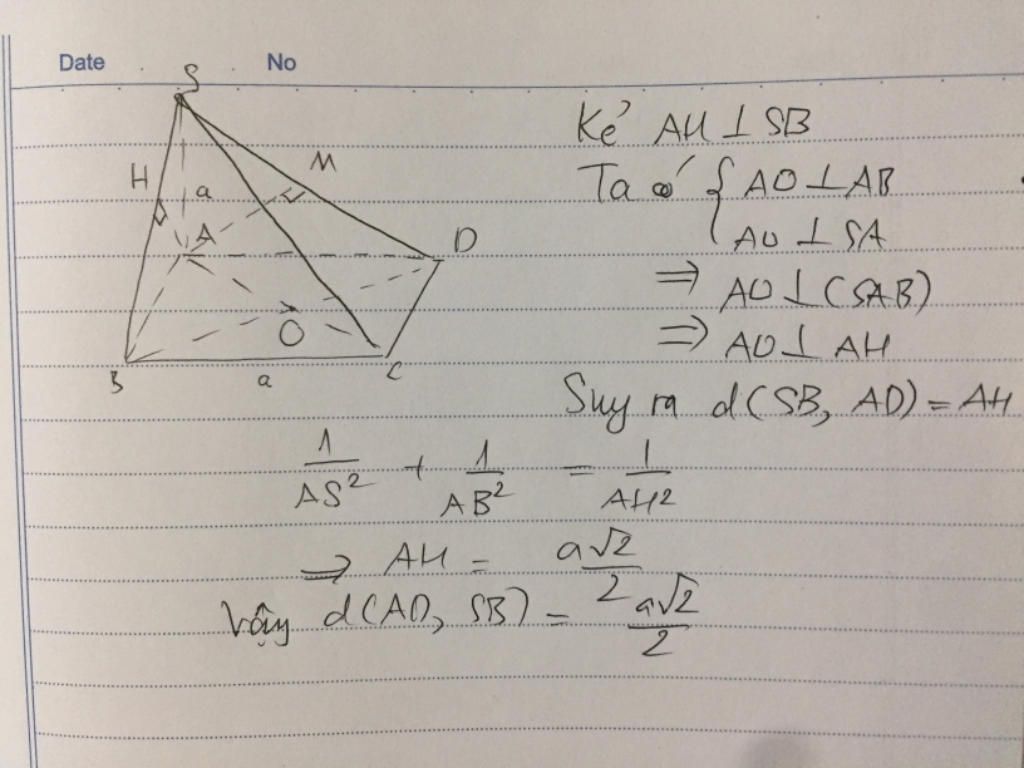 Date No
S
H
M
a
A
D
O
B
a
C
Kẻ AH ⊥ SB
Ta có { AD ⊥ AB
AD ⊥ SA
⇒ AD ⊥ (SAB)
⇒ AD ⊥ AH
Suy ra d(SB, AD) = AH
1/AS² + 1/AB² = 1/AH²
⇒ AH = a√2/2
Vậy d(AD, SB) = a√2/2